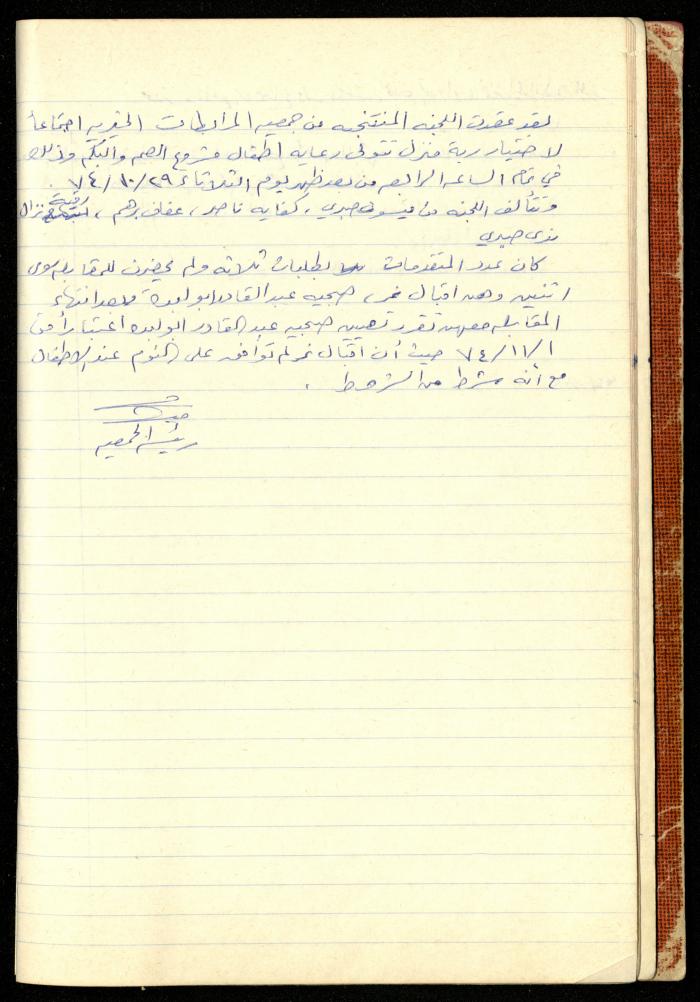 لقد عقدت اللجنه المنتخبه عن جمعيه المرابطات الخيريه اجتماعاً
لاختيار ربة منزل تتولى رعايه اطفال مشروع الصم والبكم وذلك
في تمام الساعه الرابعه من بعد ظهر يوم الثلاثاء ٢٩/١٠/٧٤ .
وتتألف اللجنه من ميسون صبري، كفايه ناصر، عفاف برهم، رقية نزال
ندى صبري
كان عدد المتقدمات بطلبات ثلاثه ولم يحضرن للمقابله سوى
اثنين وهن اقبال نمر، صبحيه عبد القادر ابو لبده وبعد انتهاء
المقابله معهن تقرر تعيين صبحيه عبد القادر ابو لبده اعتباراً من
١/١١/٧٤ حيث أن اقبال نمر لم توافق على النوم عند الاطفال
مع أنه شرط من الشروط .
رئيسة الجمعيه